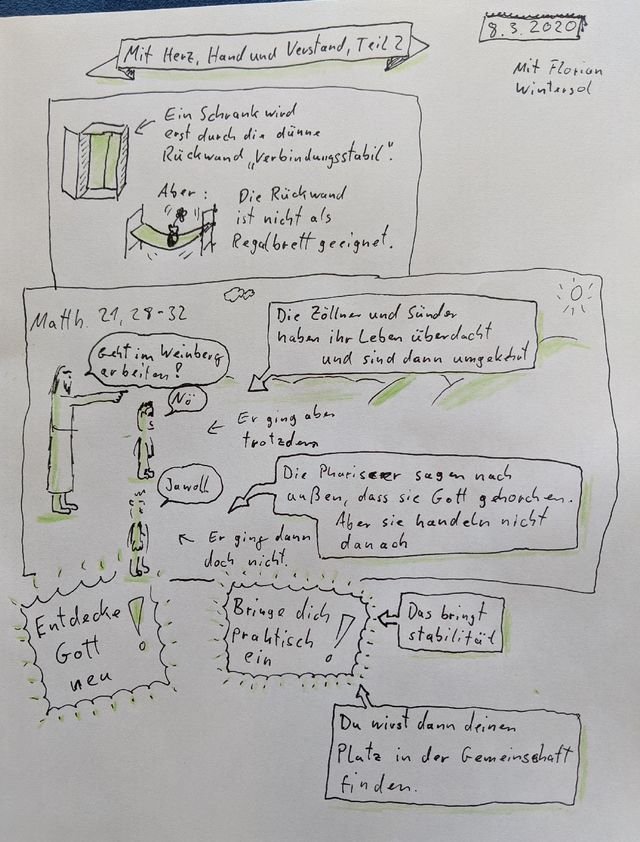 Mit Herz, Hand und Verstand, Teil 2
8.3.2020
Mit Florian
Wintersol
Ein Schrank wird
erst durch die dünne
Rückwand „Verbindungsstabil".
Aber:
Die Rückwand
ist nicht als
Regalbrett geeignet.
Matth. 21, 28-32
Die Zöllner und Sünder
haben ihr Leben überdacht
und sind dann umgekehrt
Geht im Weinberg
arbeiten!
Nö
Er ging aber
trotzdem
Jawoll
Die Pharisäer sagen nach
außen, dass sie Gott gehorchen.
Aber sie handeln nicht
danach
Er ging dann
doch nicht.
Entdecke
Gott
neu!
Bringe dich
praktisch
ein!
Das bringt
stabilität
Du wirst dann deinen
Platz in der Gemeinschaft
finden.